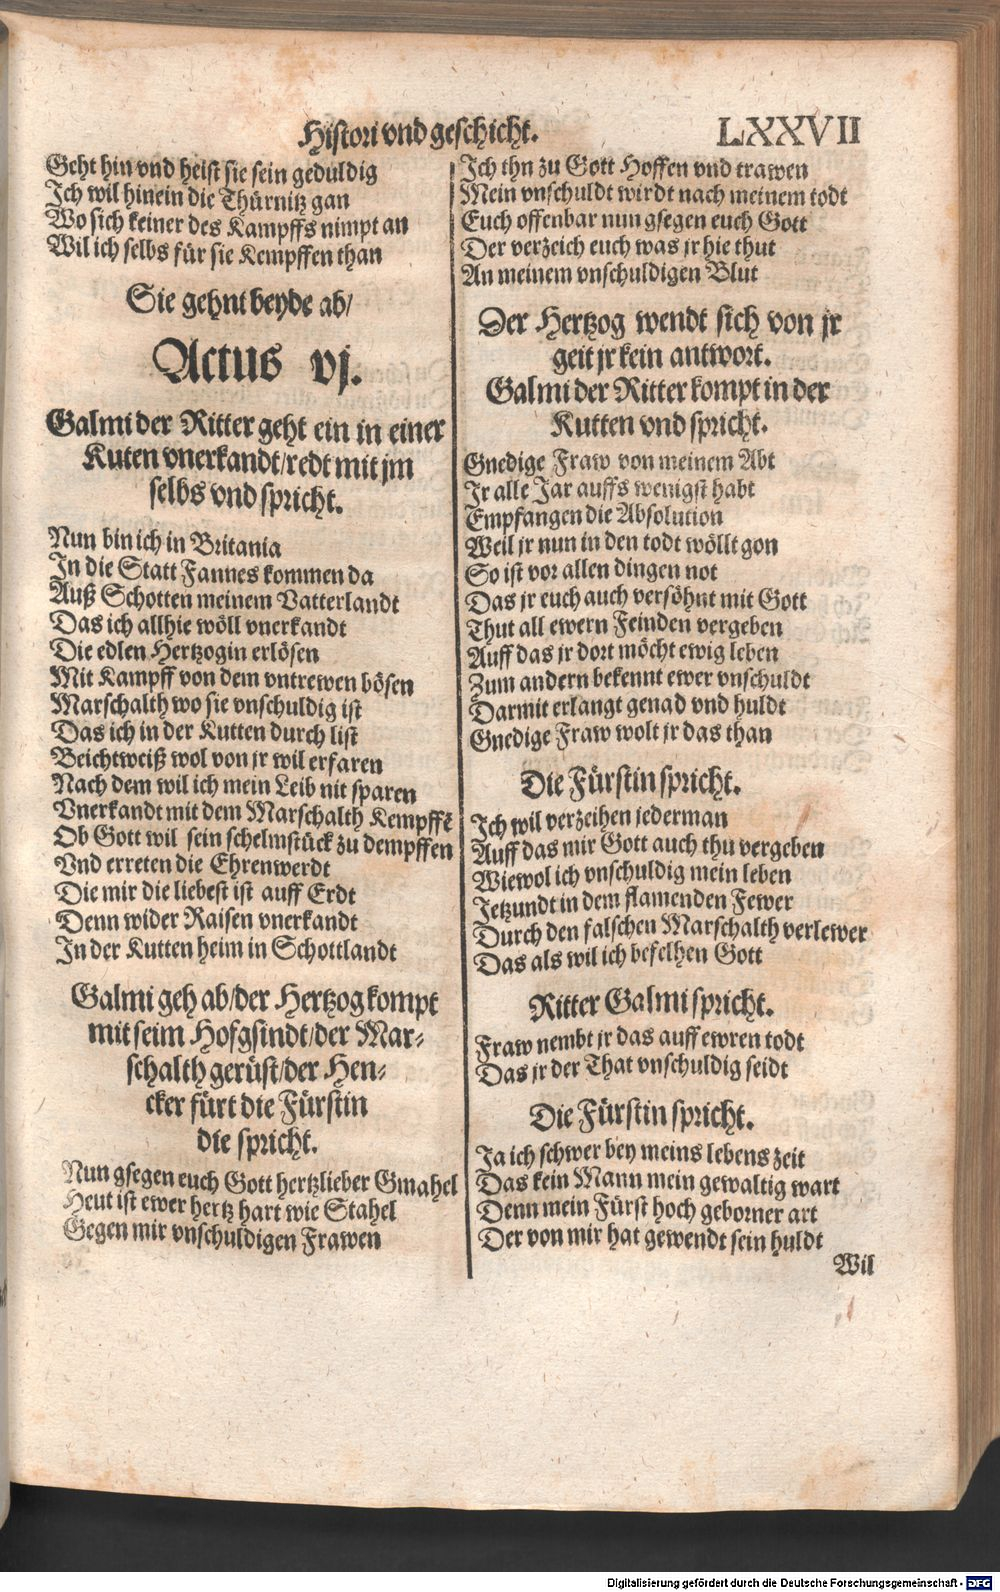 Histori vnd geschicht. LXXVII
Geht hin vnd heist sie sein geduldig
Ich wil hinein die Thürnitz gan
Wo sich keiner des Kampffs nimpt an
Wil ich selbs für sie Kempffen than
Sie gehnt beyde ab/
Actus vj.
Galmi der Ritter geht ein in einer
Kuten vnerkandt/redt mit jm
selbs vnd spricht.
Nun bin ich in Britania
In die Statt Fannes kommen da
Auß Schotten meinem Vatterlandt
Das ich allhie wöll vnerkandt
Die edlen Hertzogin erlösen
Mit Kampff von dem vntrewen bösen
Marschalth wo sie vnschuldig ist
Das ich in der Kutten durch list
Beichtweiß wol von jr wil erfaren
Nach dem wil ich mein Leib nit sparen
Vnerkandt mit dem Marschalth Kempffẽ
Ob Gott wil sein schelmstück zu dempffen
Vnd erreten die Ehrenwerdt
Die mir die liebest ist auff Erdt
Denn wider Raisen vnerkandt
In der Kutten heim in Schottlandt
Galmi geh ab/der Hertzog kompt
mit seim Hofgsindt/der Mar-
schalth gerüst/der Hen-
cker fürt die Fürstin
die spricht.
Nun gsegen euch Gott hertzlieber Gmahel
Heut ist ewer hertz hart wie Stahel
Gegen mir vnschuldigen Frawen
Ich thn zu Gott Hoffen vnd trawen
Mein vnschuldt wirdt nach meinem todt
Euch offenbar nun gsegen euch Gott
Der verzeich euch was jr hie thut
An meinem vnschuldigen Blut
Der Hertzog wendt sich von jr
geit jr kein antwort.
Galmi der Ritter kompt in der
Kutten vnd spricht.
Gnedige Fraw von meinem Abt
Jr alle Jar auffs wenigst habt
Empfangen die Absolution
Weil jr nun in den todt wöllt gon
So ist vor allen dingen not
Das jr euch auch versöhnt mit Gott
Thut all ewern Feinden vergeben
Auff das jr dort möcht ewig leben
Zum andern bekennt ewer vnschuldt
Darmit erlangt genad vnd huldt
Gnedige Fraw wolt jr das than
Die Fürstin spricht.
Ich wil verzeihen jederman
Auff das mir Gott auch thu vergeben
Wiewol ich vnschuldig mein leben
Jetzundt in dem flamenden Fewer
Durch den falschen Marschalth verlewer
Das als wil ich befelhen Gott
Ritter Galmi spricht.
Fraw nembt jr das auff ewren todt
Das jr der That vnschuldig seidt
Die Fürstin spricht.
Ja ich schwer bey meins lebens zeit
Das kein Mann mein gewaltig wart
Denn mein Fürst hoch geborner art
Der von mir hat gewendt sein huldt
Wil
Digitalisierung gefördert durch die Deutsche Forschungsgemeinschaft - DFG